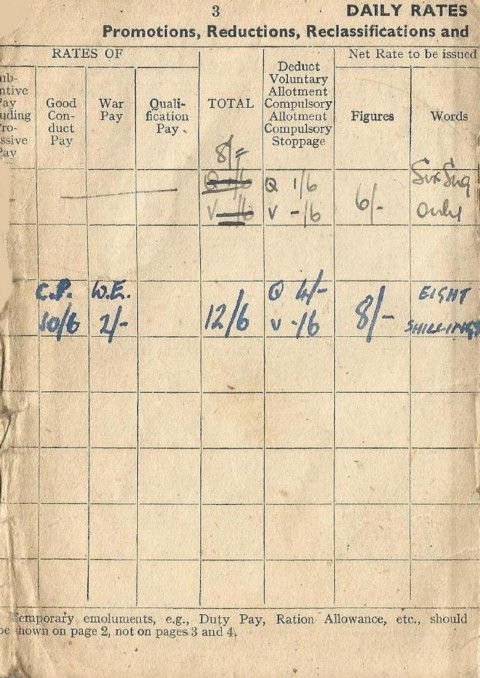 3 DAILY RATES
Promotions, Reductions, Reclassifications and
RATES OF
Net Rate to be issued
ub-
ntive
Pay
uding
Pro-
ssive
Pay
Good
Con-
duct
Pay
War
Pay
Quali-
fication
Pay
TOTAL
Deduct
Voluntary
Allotment
Compulsory
Allotment
Compulsory
Stoppage
Figures
Words
8/=
Q 1/6
V -/6
6/-
Six
only
C.P.
10/6
W.E.
2/-
12/6
Q 4/-
V -/6
8/-
EIGHT
SHILLINGS
Temporary emoluments, e.g., Duty Pay, Ration Allowance, etc., should
be shown on page 2, not on pages 3 and 4.